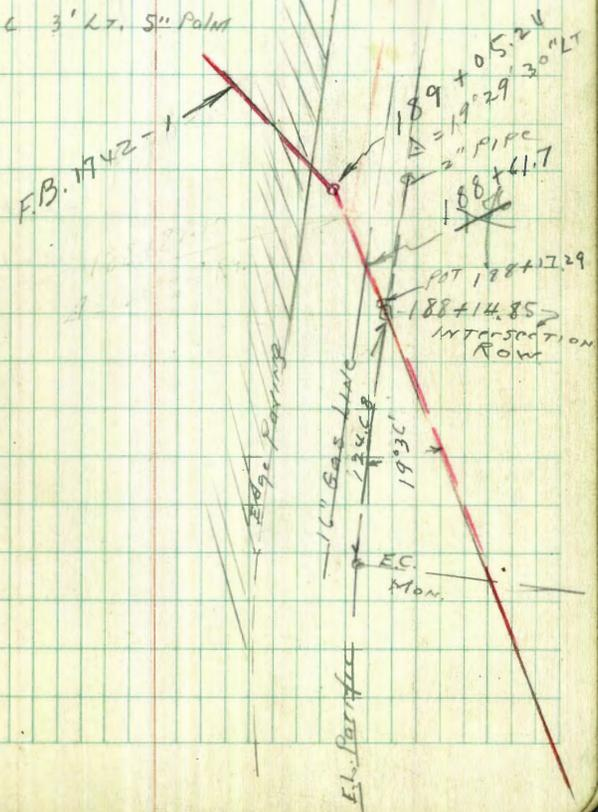 3' LT. 5" Palm
F.B. 1742-1
189 + 05.24
Δ = 19° 29' 30" LT
2" PIPE
188 + 61.7
POT 188+17.29
188+14.85
INTERSECTION
ROW
Edge Paving
16" Gas LINE
124.68
19°36'
E.C.
MON.
E.L. Pacific